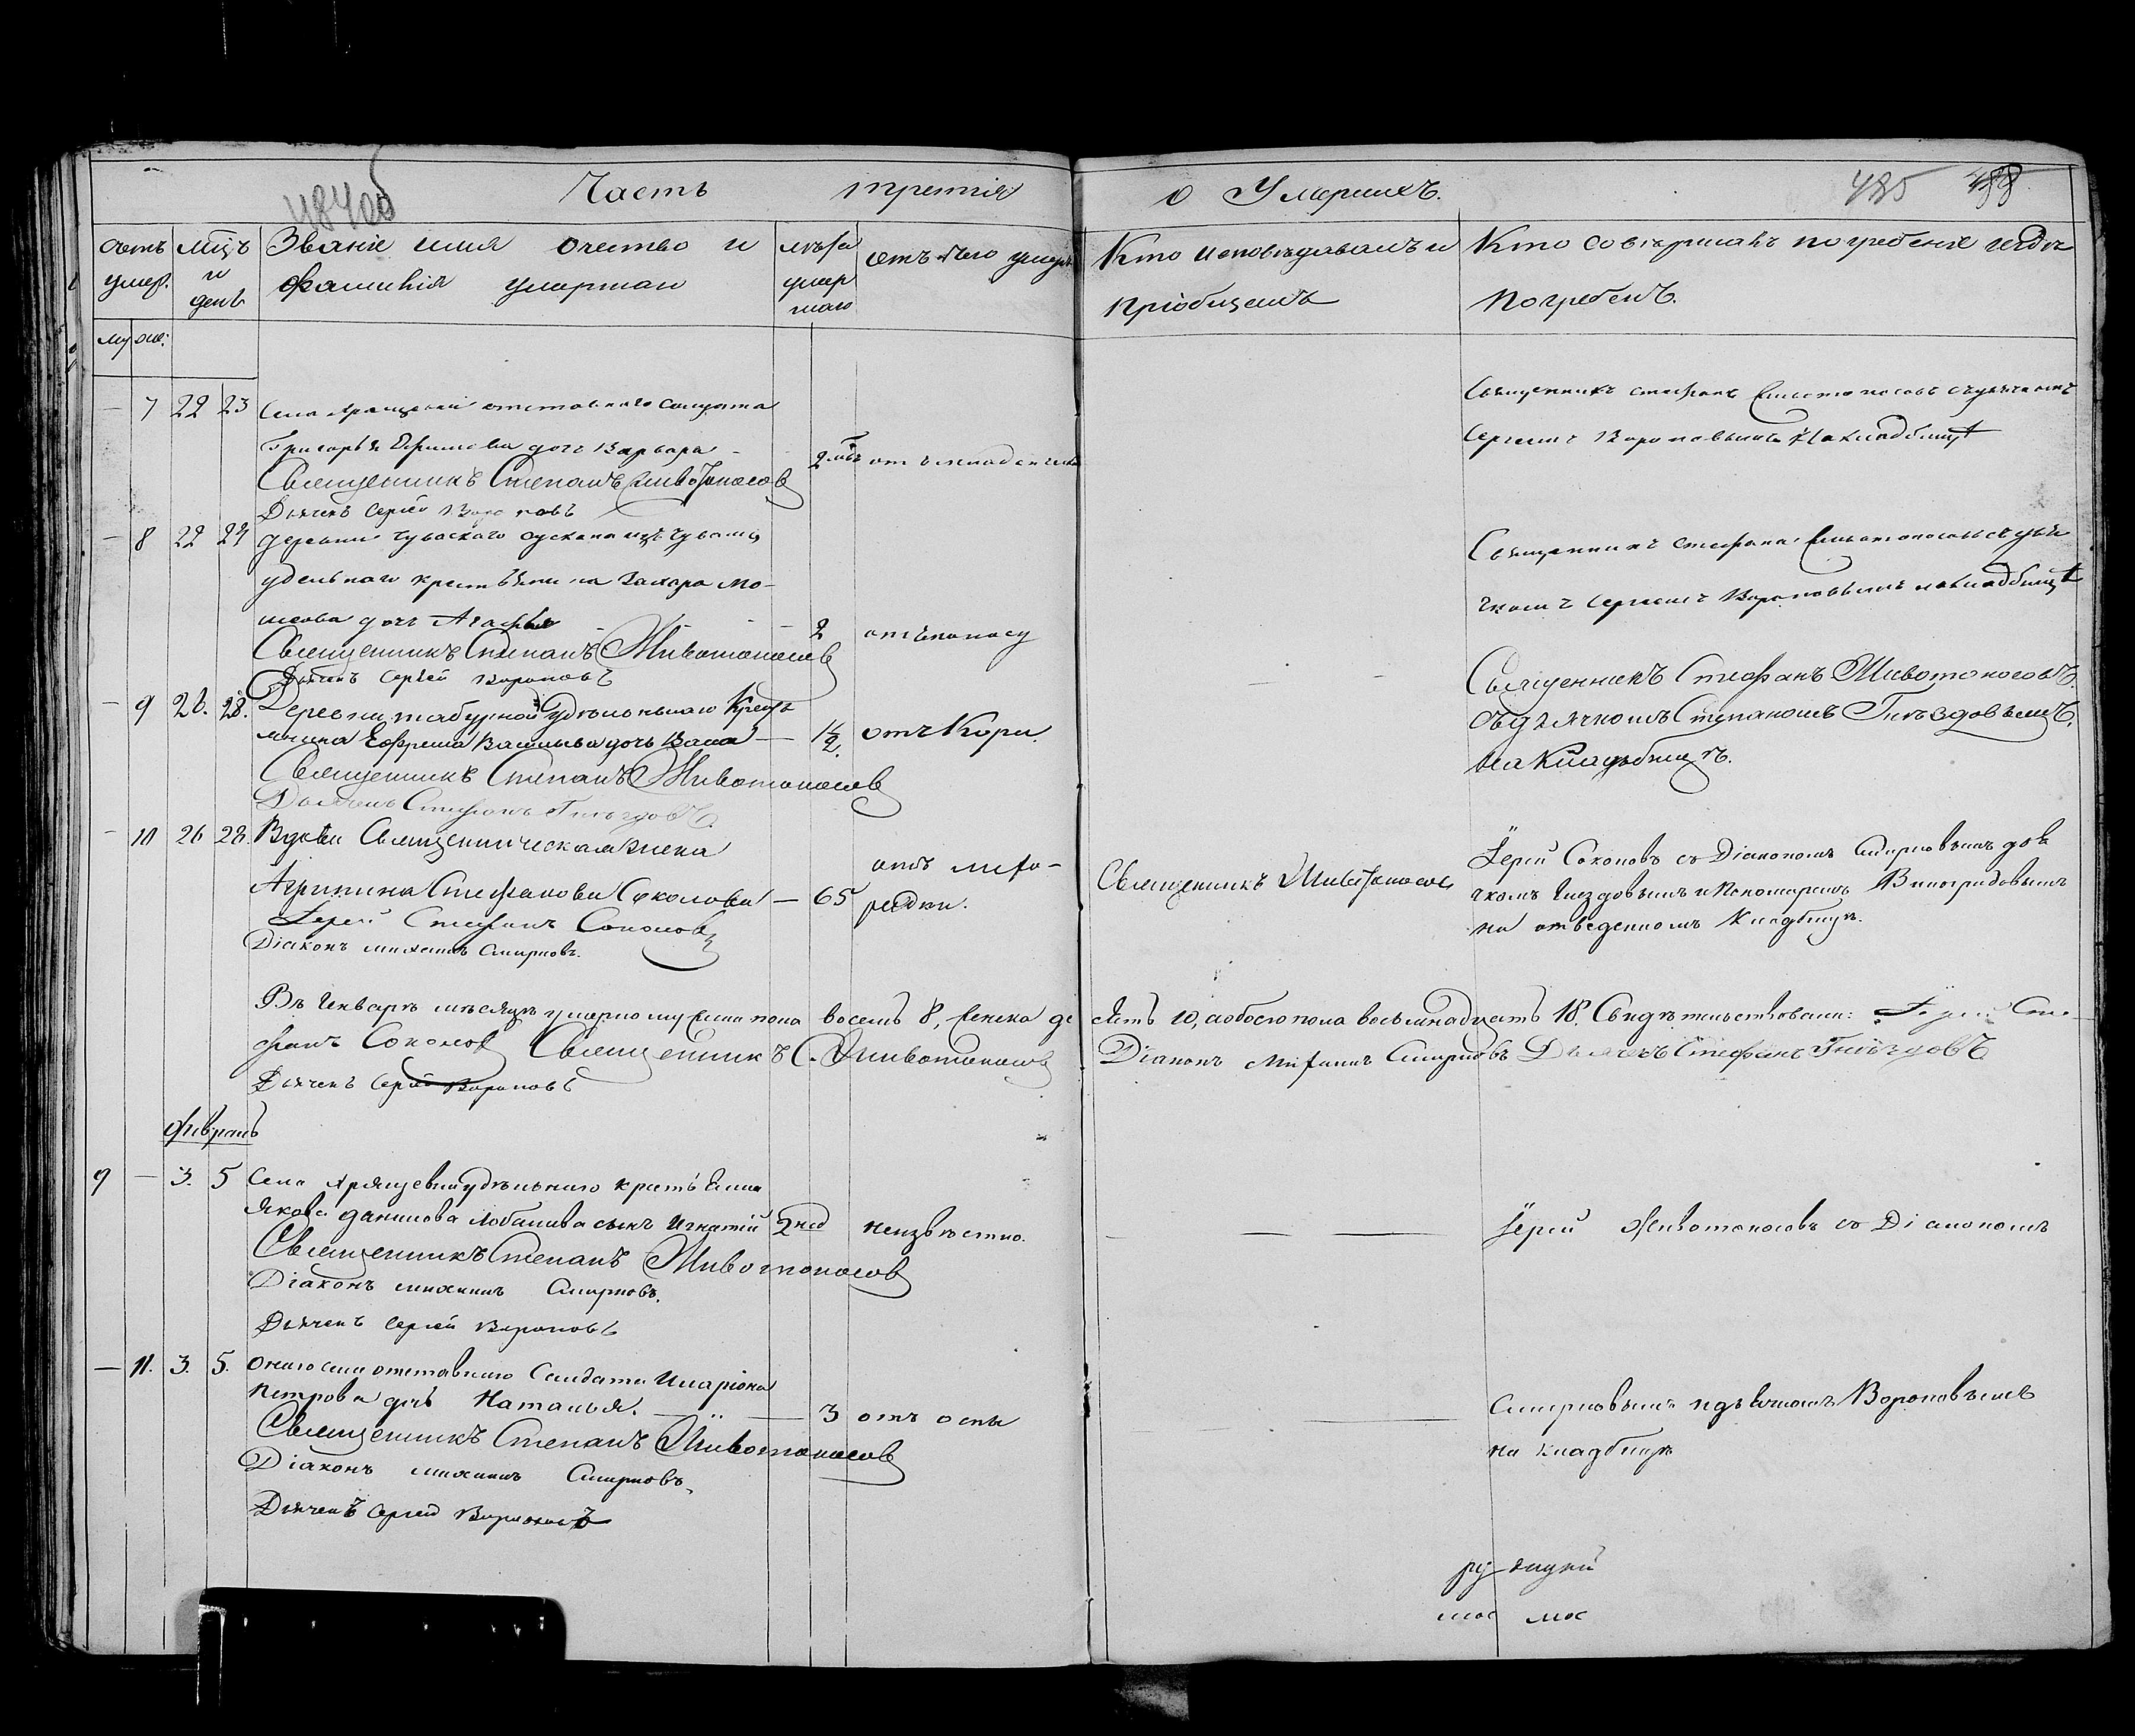 484об
Часть третія о Умершихъ.
485 488
счетъ умер.
мцъ и день
Званіе имя очество и фамилія умершаго
лѣта умершаго
отъ чего умеръ
Кто исповѣдавалъ и пріобщалъ
Кто совершалъ погребеніе и гдѣ погребенъ.
му же:
— 7 22 23 Села Хрящевки отставнаго солдата
Григорья Ефимова дочь Варвара 2 отъ младенческой
Священникъ Степанъ Животоносов
Дьячекъ Сергей Вороновъ
Священникъ Стефанъ Животоносовъ съ дьячкомъ
Сергеемъ Вороновымъ На кладбищѣ
— 8 22 24 деревни Чуваскаго Сускана изъ чувашъ
удельнаго крестьянина Захара Мо-
исеева дочь Агафья 2 отъ поносу
Священникъ Степанъ Животоносов
Дьячекъ Сергей Вороновъ
Священникъ Стефанъ Животоносовъ съ дья
чкомъ Сергеемъ Вороновымъ на кладбищѣ
— 9 26. 28. Деревни табурной Удѣльнаго Кресть
янина Ефрема Васильева дочь Васса — 1/2. отъ Кори.
Священникъ Степанъ Животоносов
Дьячекъ Стефанъ Гнѣздовъ.
Священникъ Стефанъ Животоносовъ.
съ дьячкомъ Степаномъ Гнѣздовымъ.
на Кладбищѣ.
— 10 26 28. Вдова Священническая жена
Агрипина Стефанова Соколова — 65 отъ лихо-
радки.
Іерей Стефанъ Соколов
Діаконъ михаилъ Смирновъ.
Священникъ Животоносов
Іерей Соколовъ съ Діакономъ Смирновымъ дья
чкомъ Гнездовымъ и Пономаремъ Виноградовымъ
на отведенномъ Кладбищѣ.
Въ Генварѣ мѣсяцѣ умерло мужеска пола восемь 8, женска де сять 10, а обоего пола восьмнадцать 18. Свидѣтельствовали: Іерей Сте-
фанъ Соколов Священникъ С. Животоносов Діаконъ Михаилъ Смирновъ Дьячекъ Стефанъ Гнѣздовъ
Дьячекъ Сергей Вороновъ
Февраль
9 — 3. 5 Села Хрящевки удѣльнаго крестьянина
Якова данилова Лобанова сынъ Игнатій 2 нед неизвѣстно.
Священникъ Степанъ Животоносов
Діаконъ михаилъ Смирновъ.
Дьячекъ Сергей Вороновъ
Іерей Животоносовъ съ Діакономъ
— 11. 3. 5. Онаго села отставнаго Солдата Иларіона
Петрова дочь Наталья. — 3 отъ оспы
Священникъ Степанъ Животоносов
Діаконъ михаилъ Смирновъ.
Дьячекъ Сергей Вороновъ
Смирновымъ и дьячкомъ Вороновымъ
на кладбищѣ